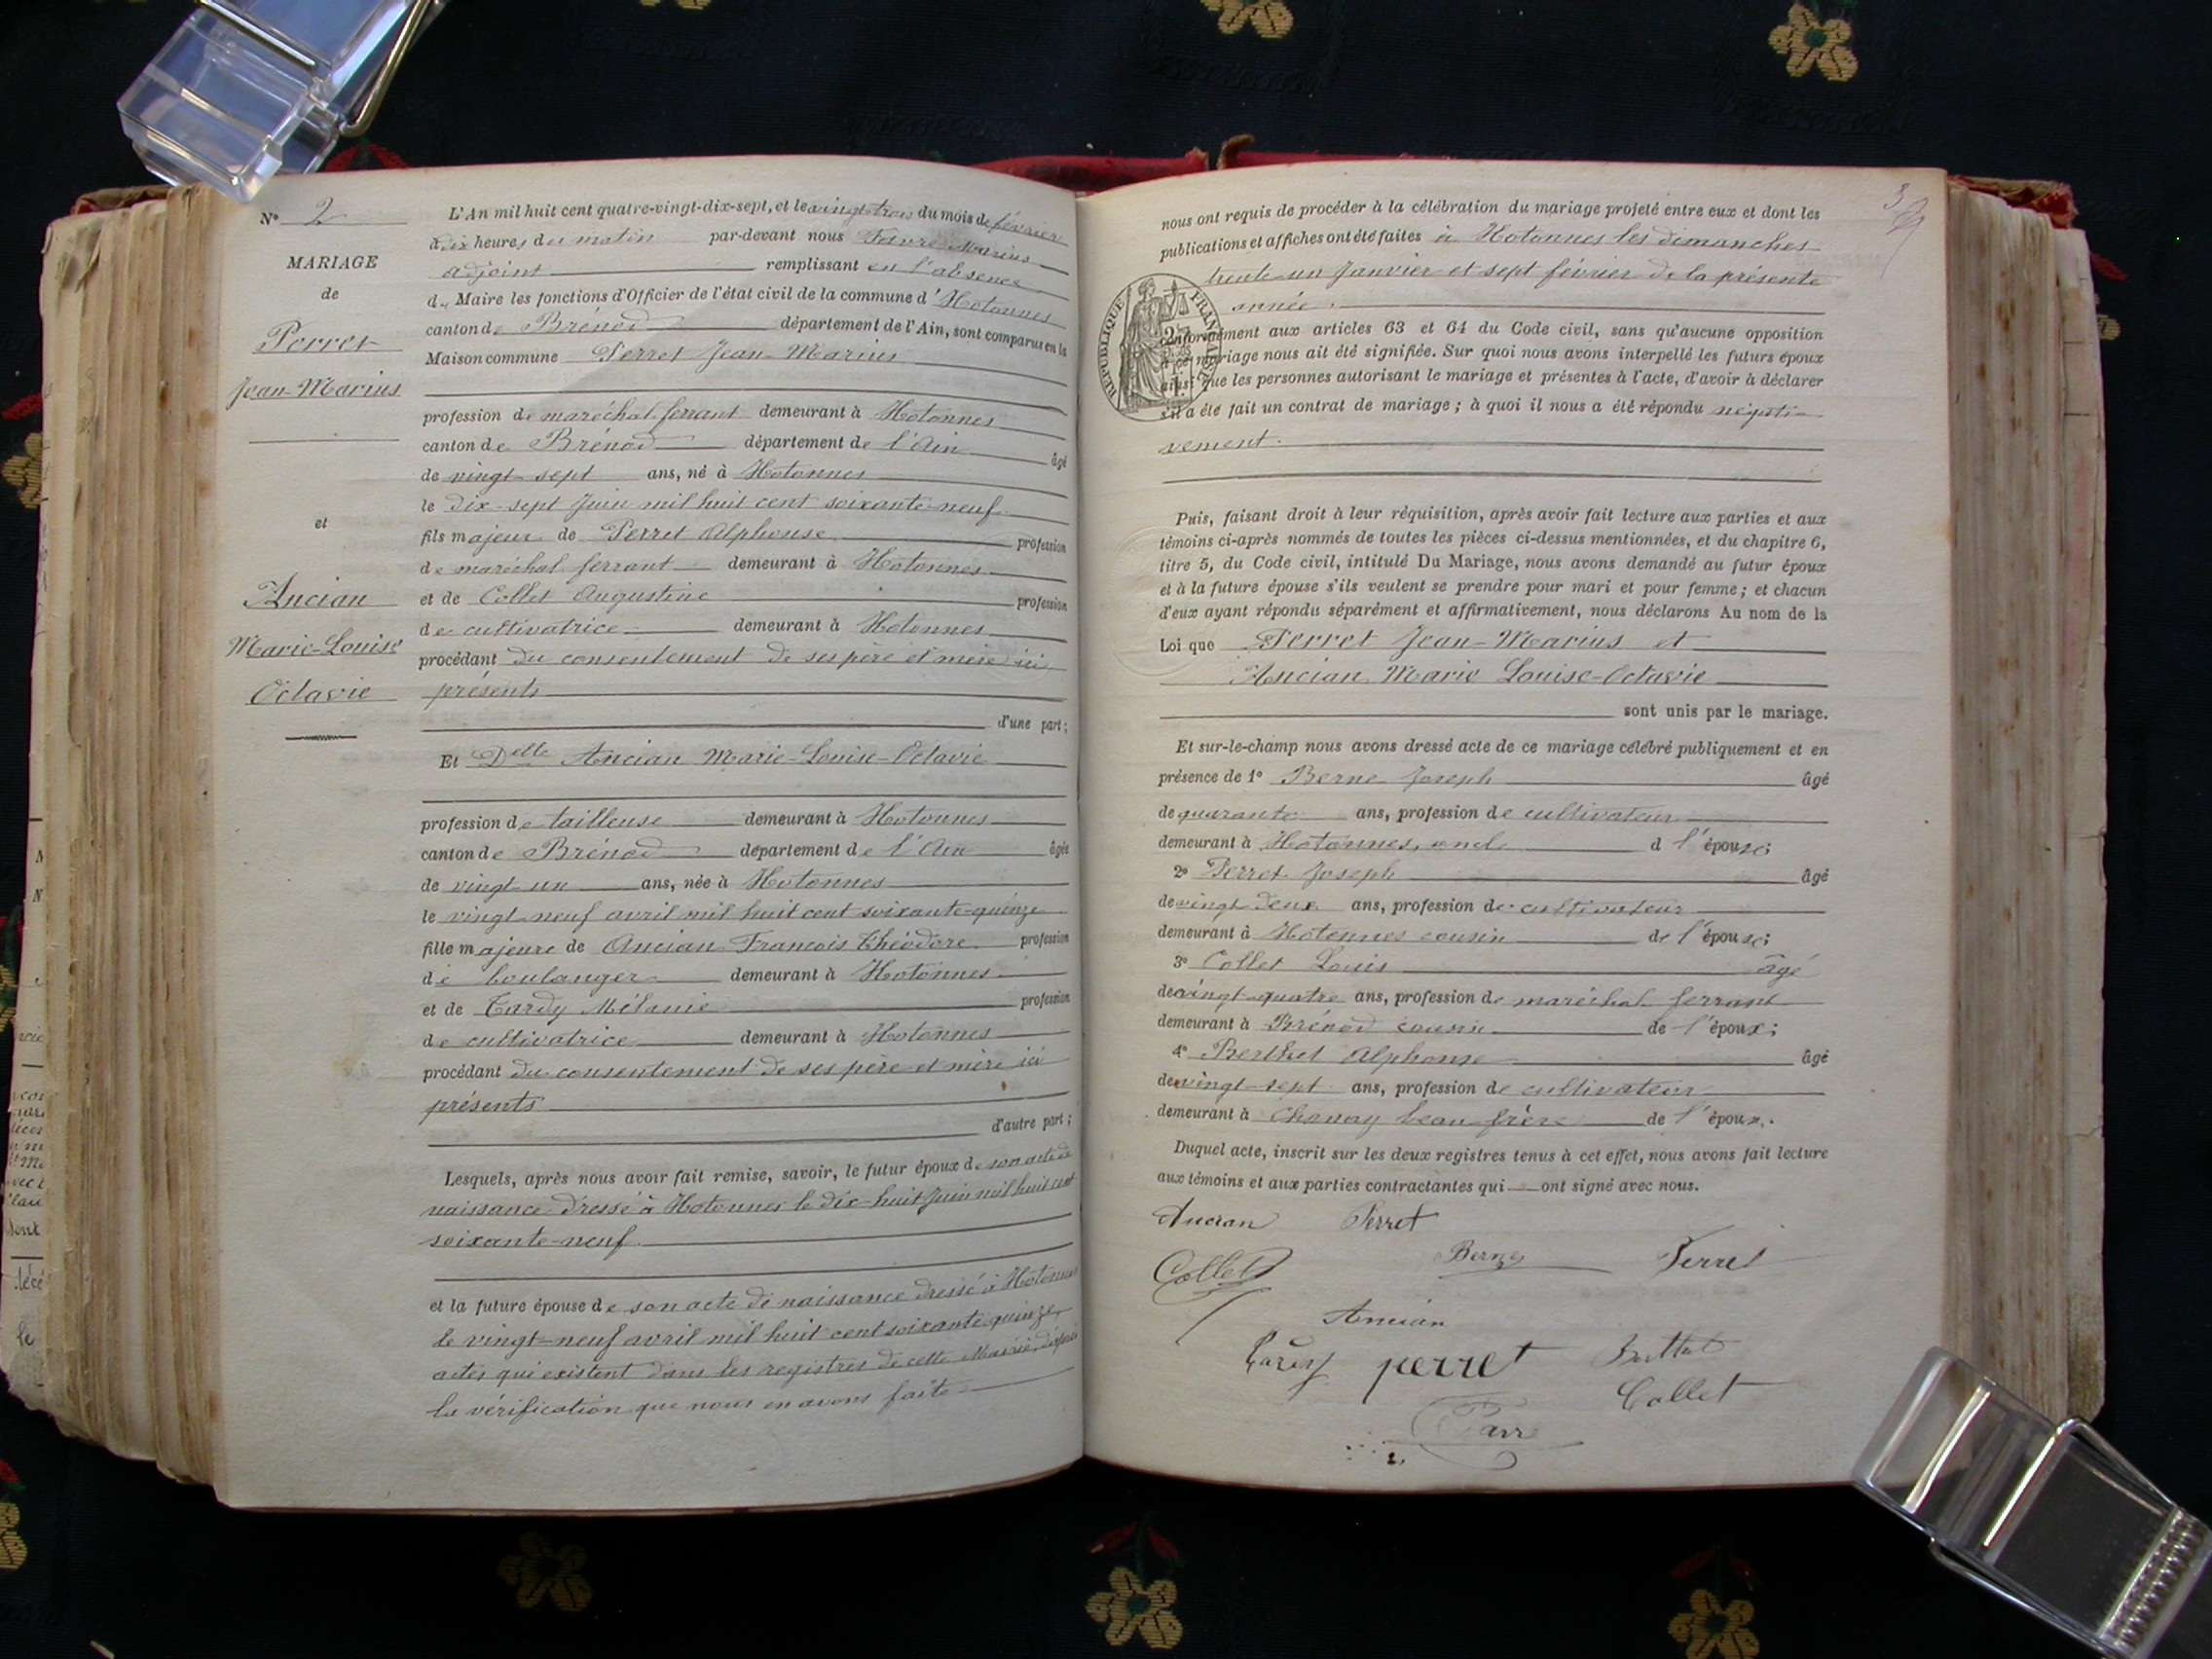 N° 2
MARIAGE
de
Perret
Jean-Marius
et
Ancian
Marie-Louise
Octavie
L'An mil huit cent quatre-vingt-dix-sept, et le vingt-trois du mois de février
à dix heures du matin par-devant nous Marius
adjoint remplissant en l'absence
du Maire les fonctions d'Officier de l'état civil de la commune d'Hotonnes
canton de Brénod département de l'Ain, sont comparus en la
Maison commune Perret Jean-Marius
profession de maréchal ferrant demeurant à Hotonnes
canton de Brénod département de l'Ain âgé
de vingt-sept ans, né à Hotonnes
le dix-sept Juin mil huit cent soixante-neuf
fils majeur de Perret Alphonse profession
de maréchal ferrant demeurant à Hotonnes
et de Collet Augustine profession
de cultivatrice demeurant à Hotonnes
procédant du consentement de ses père et mère ici
présents
d'une part;
Et Delle Ancian Marie-Louise-Octavie
profession de tailleuse demeurant à Hotonnes
canton de Brénod département de l'Ain âgée
de vingt-un ans, née à Hotonnes
le vingt-neuf avril mil huit cent soixante-quinze
fille majeure de Ancian François Théodore profession
de boulanger demeurant à Hotonnes
et de Tardy Mélanie profession
de cultivatrice demeurant à Hotonnes
procédant du consentement de ses père et mère ici
présents
d'autre part;
Lesquels, après nous avoir fait remise, savoir, le futur époux de son acte de
naissance dressé à Hotonnes le dix-huit Juin mil huit cent
soixante-neuf
et la future épouse de son acte de naissance dressé à Hotonnes
le vingt-neuf avril mil huit cent soixante-quinze
actes qui existent dans les registres de cette Mairie d'après
la vérification que nous en avons faite
3
nous ont requis de procéder à la célébration du mariage projeté entre eux et dont les
publications et affiches ont été faites à Hotonnes les dimanches
trente-un Janvier et sept février de la présente
année.
RÉPUBLIQUE FRANÇAISE
conformément aux articles 63 et 64 du Code civil, sans qu'aucune opposition
à ce mariage nous ait été signifiée. Sur quoi nous avons interpellé les futurs époux
ainsi que les personnes autorisant le mariage et présentes à l'acte, d'avoir à déclarer
s'il a été fait un contrat de mariage; à quoi il nous a été répondu négati-
vement.
Puis, faisant droit à leur réquisition, après avoir fait lecture aux parties et aux
témoins ci-après nommés de toutes les pièces ci-dessus mentionnées, et du chapitre 6,
titre 5, du Code civil, intitulé Du Mariage, nous avons demandé au futur époux
et à la future épouse s'ils veulent se prendre pour mari et pour femme; et chacun
d'eux ayant répondu séparément et affirmativement, nous déclarons Au nom de la
Loi que Perret Jean-Marius et
Ancian Marie Louise-Octavie
sont unis par le mariage.
Et sur-le-champ nous avons dressé acte de ce mariage célébré publiquement et en
présence de 1° Berne Joseph âgé
de quarante ans, profession de cultivateur
demeurant à Hotonnes, oncle d l'épouse;
2° Perret Joseph âgé
de vingt-deux ans, profession de cultivateur
demeurant à Hotonnes cousin de l'épouse;
3° Collet Louis âgé
de vingt-quatre ans, profession de maréchal ferrant
demeurant à Brénod cousin de l'époux;
4° Berthet Alphonse âgé
de vingt-sept ans, profession de cultivateur
demeurant à Chanay beau-frère de l'époux.
Duquel acte, inscrit sur les deux registres tenus à cet effet, nous avons fait lecture
aux témoins et aux parties contractantes qui ont signé avec nous.
Ancian Perret
Collet Berne Perret
Ancian
Tardy perret Berthet
Collet